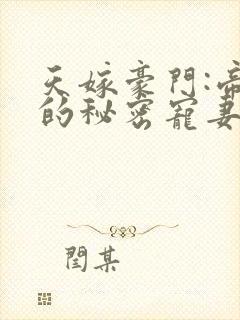 天嫁豪門:帝
的秘密寵妻
閏某